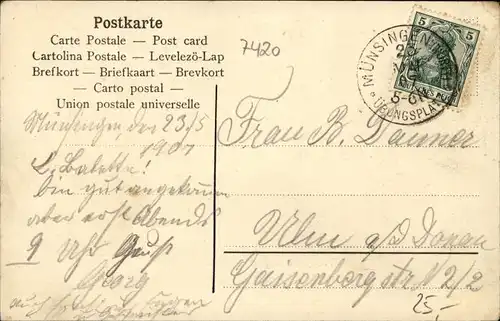 Postkarte
Carte Postale — Post card
Cartolina Postale — Levelezö-Lap
Brefkort — Briefkaart — Brevkort
— Carto postal —
Union postale universelle
7420
5 5
MÜNSINGEN
ÜBUNGSPLATZ
5-6
Münsingen, den 23/5
1907
L. Babette!
bin gut angekommen
aber erst Abends
9 Uhr Gruß
Georg
Frau B. Danner
Ulm a/d Donau
Gaisenbergstr N 2/2
25,-